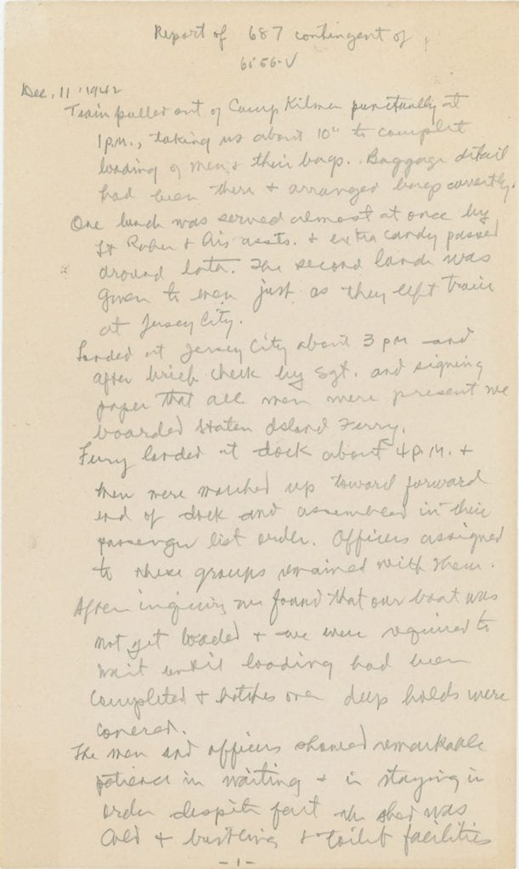 Report of 687 contingent of
6566-V
Dec. 11, 1942
Train pulled out of Camp Kilmer punctually at
1 p.m., taking us about 10" to complete
loading of men & their bags. Baggage detail
had been there & arranged
One lunch was served almost at once by
Lt & his assts. & extra candy passed
around later. The second lunch was
given to men just as they left train
at Jersey City.
Landed at Jersey City about 3 pm and
after brief check by Sgt. and signing
paper that all men were present we
boarded Staten Island Ferry.
Ferry landed at dock about 4 p.m. &
men were marched up toward forward
end of dock and assembled in their
passenger list order. Officers assigned
to these groups remained with them.
After inquiring we found that our boat was
not yet loaded & we were required to
wait until loading had been
completed & hatches over deep holds were
covered.
The men and officers showed remarkable
patience in waiting & in staying in
order despite fact the shed was
cold & & toilet facilities
-1-